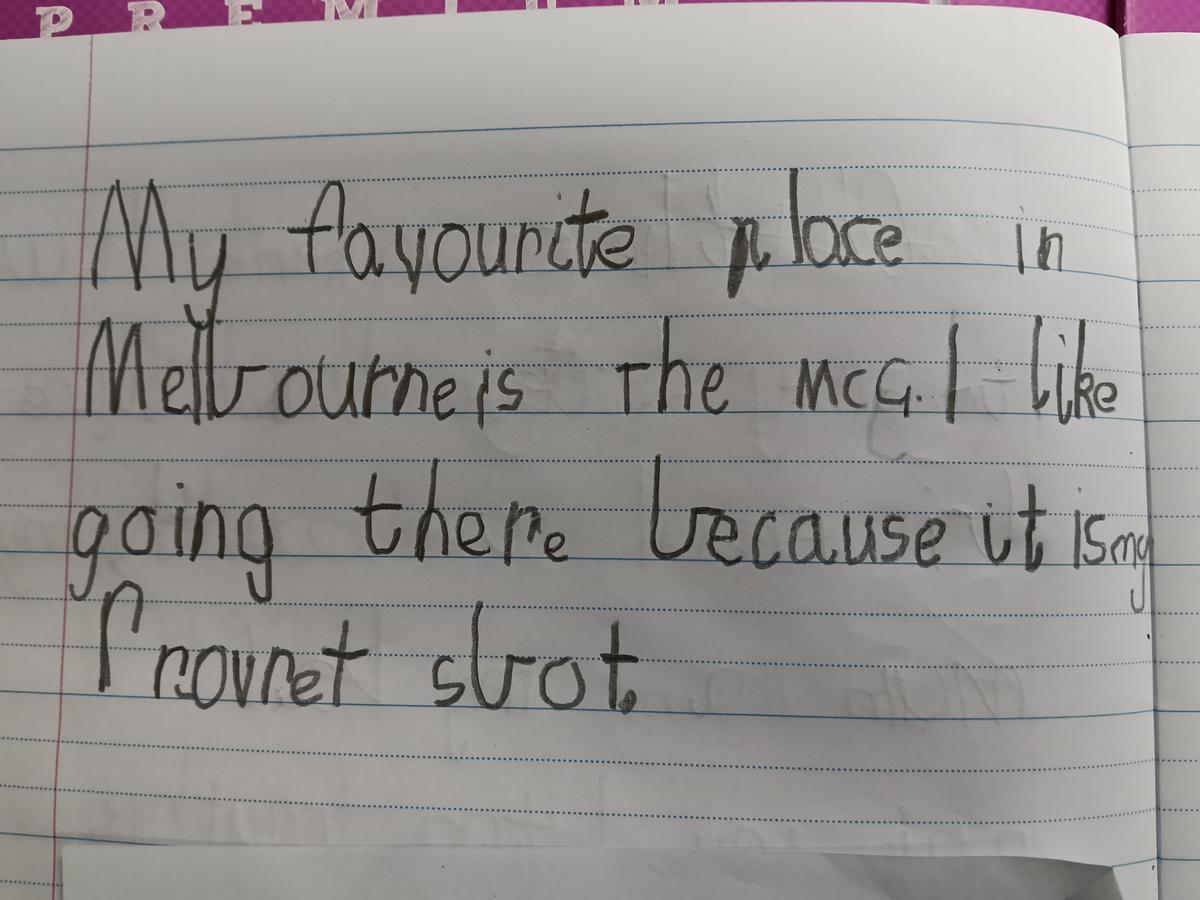 PREMIUM
My favourite place in
Melbourne is the MCG. I like
going there because it is my
frovret sbot.